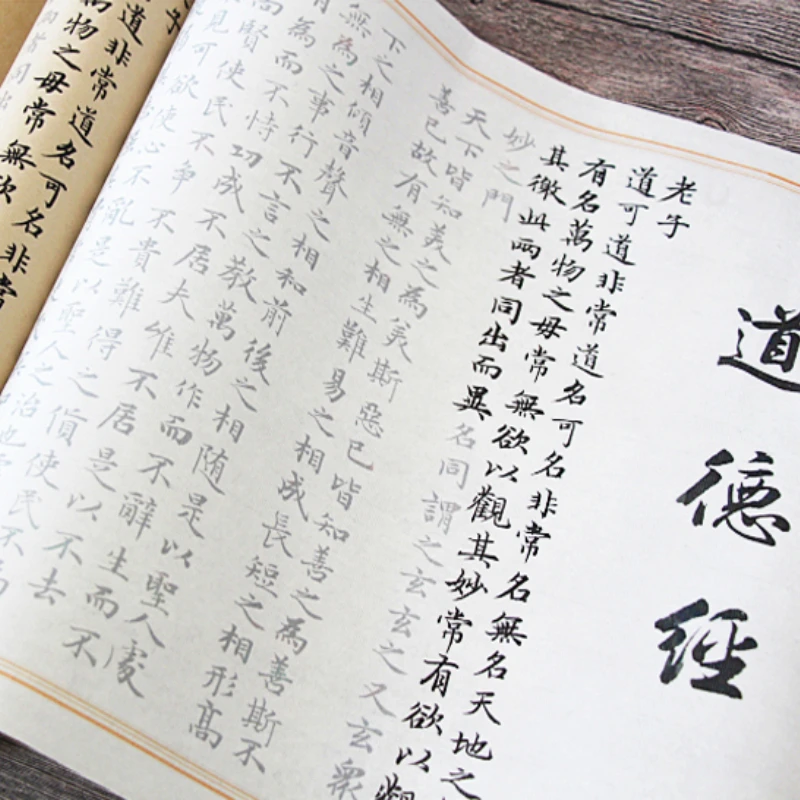 道德經
老子
道可道非常道名可名非常名無名天地之
有名萬物之母常無欲以觀其妙常有欲以觀
其徼此兩者同出而異名同謂之玄玄之又玄衆
妙之門
天下皆知美之為美斯惡已皆知善之為善斯不
善已故有無之相生難易之相成長短之相形高
下之相傾音聲之相和前後之相随是以聖人處
無為之事行不言之教萬物作而不辭生而不
有為而不恃功成不居夫唯不居是以不去
尚賢使民不爭不貴難得之貨使民不為
見可欲使心不亂是以聖人之治也
子
道非常道名可名非常
萬物之母常無欲